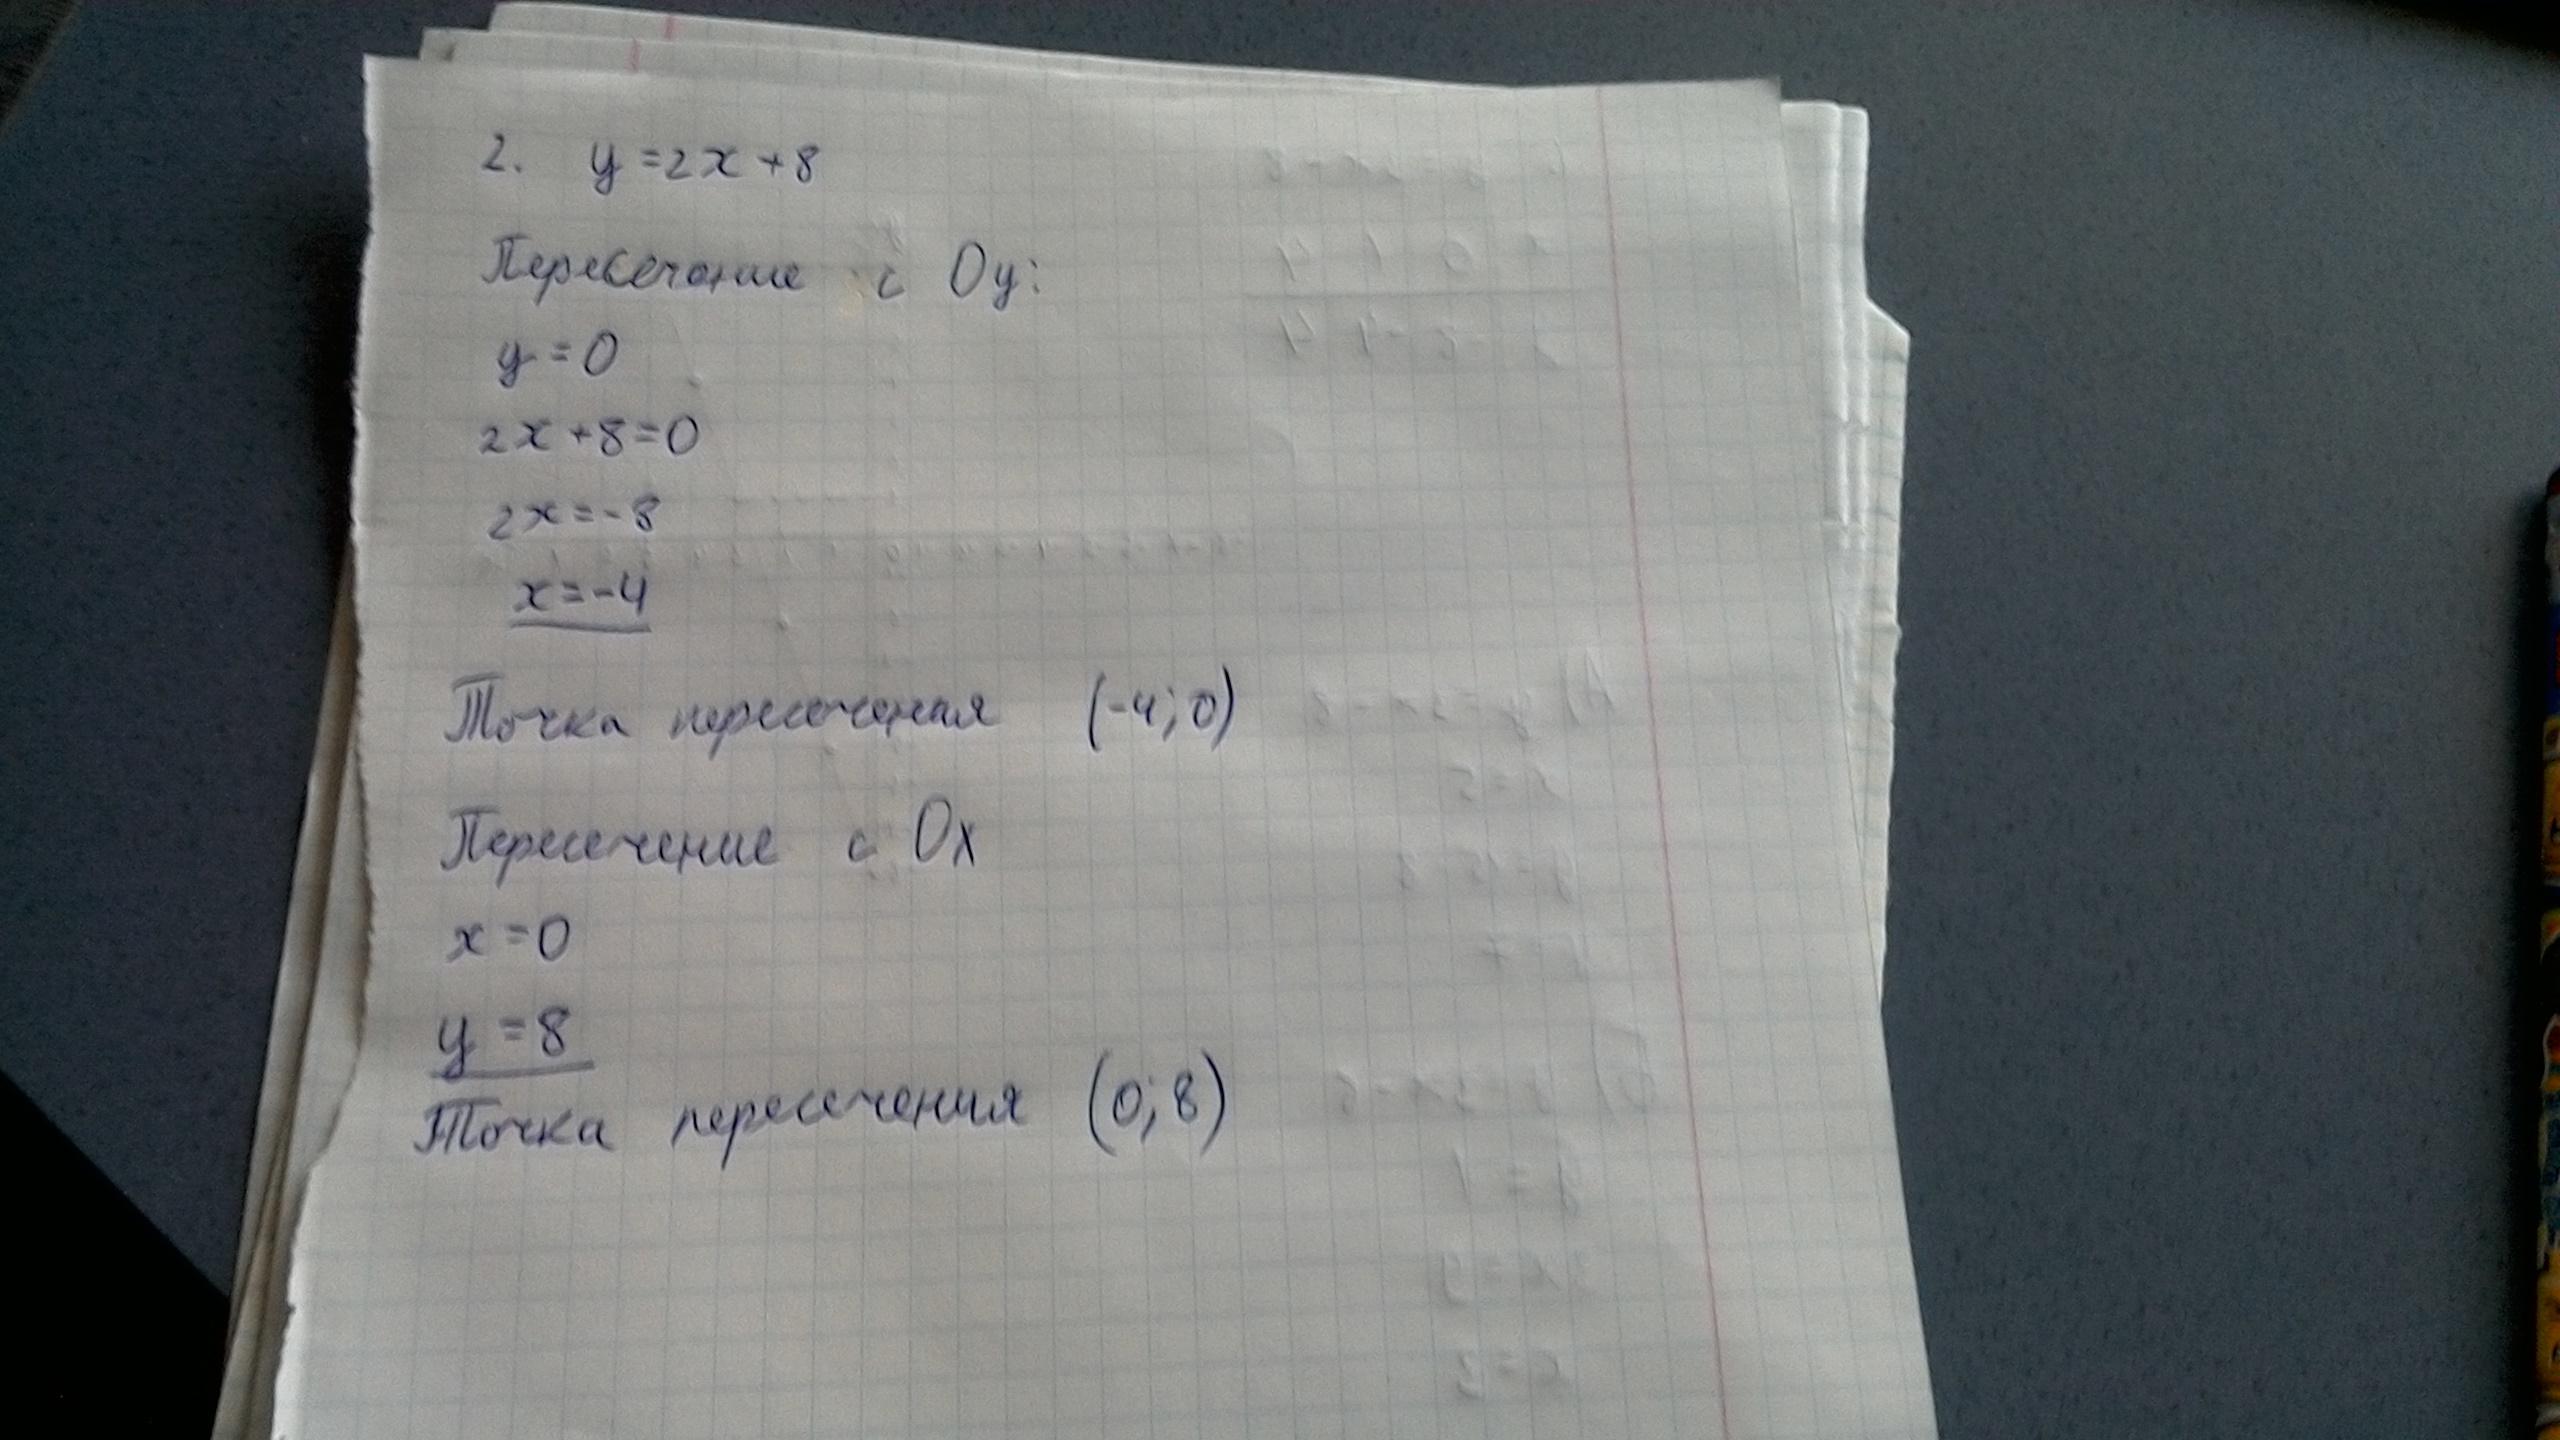 2. y = 2x + 8
Пересечение с Oy:
y = 0
2x + 8 = 0
2x = -8
x = -4
Точка пересечения (-4; 0)
Пересечение с Ox
x = 0
y = 8
Точка пересечения (0; 8)